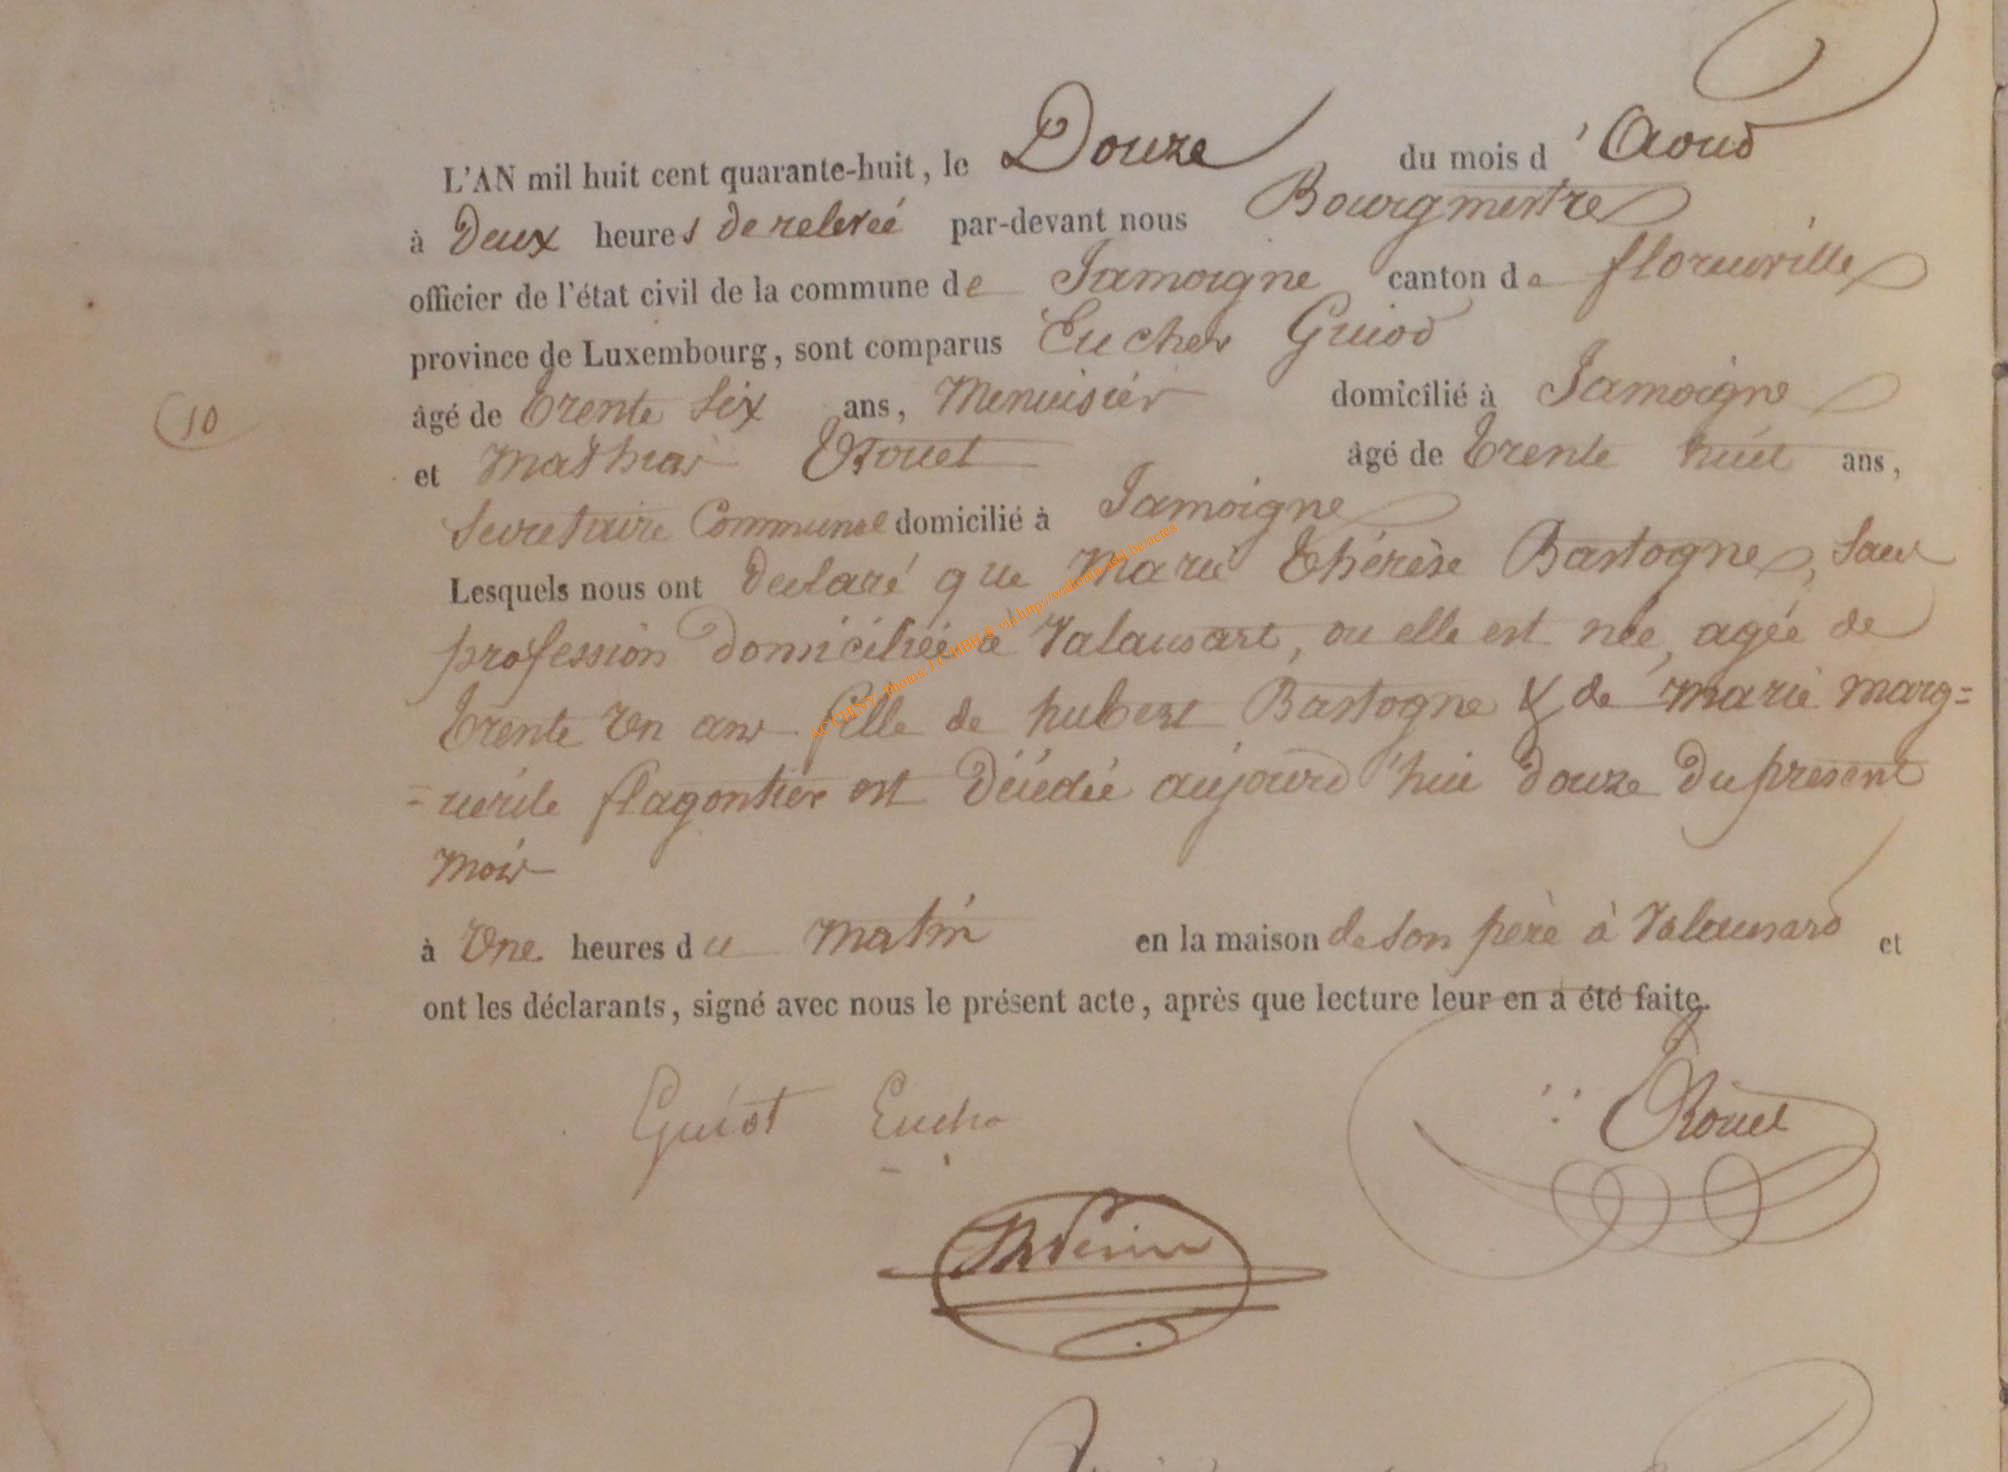 L'AN mil huit cent quarante-huit, le Douze du mois d'Aoud
à Deux heures de relevée par-devant nous Bourgmestre
officier de l'état civil de la commune de Jamoigne canton de florenville
province de Luxembourg, sont comparus Eucher Guiod
(10
âgé de trente six ans, Menuisier domicilié à Jamoigne
et Mathias Rouel âgé de trente huit ans,
Secretaire Communal domicilié à Jamoigne
Lesquels nous ont declaré que Marie Thérèse Bastogne, Sans
profession domiciliée à Valansart, ou elle est née, agée de
trente un ans fille de hubert Bastogne & de marie marg=
=uerite flagontier est Décédée aujourd'hui douze du present
mois
à Une heures du matin en la maison de son père à Valansard et
ont les déclarants, signé avec nous le présent acte, après que lecture leur en a été faite.
Guiot Eucher
Rouel
AC CHINY - Photos J.C. via http://wallonia-asbl.be/actes